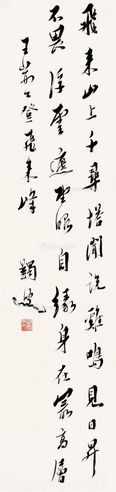 飛来山上千尋塔聞說雞鳴見日昇
不畏浮雲遮望眼自緣身在最高層
王荊公登飛来峰